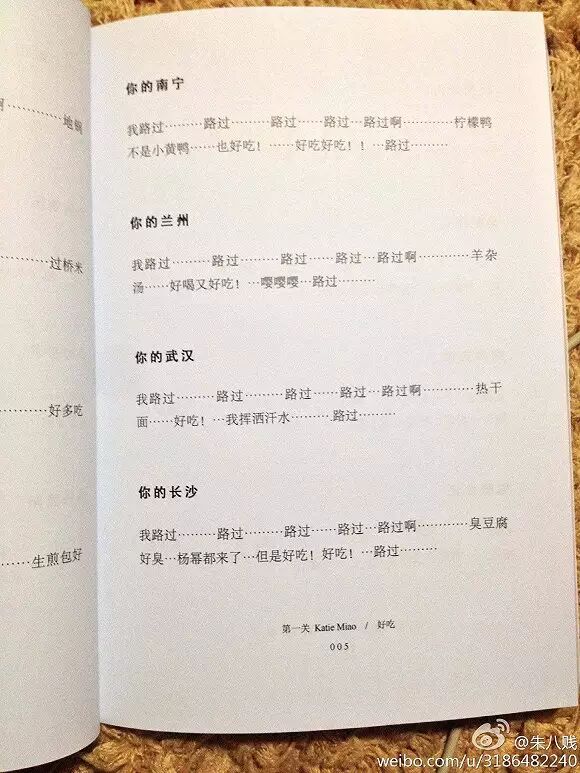 地锅
过桥米
好多吃
生煎包好
你的南宁
我路过………路过………路过……路过…路过啊…………柠檬鸭
不是小黄鸭……也好吃！……好吃好吃！！…路过………
你的兰州
我路过………路过………路过……路过…路过啊…………羊杂
汤……好喝又好吃！…嘤嘤嘤…路过………
你的武汉
我路过………路过………路过……路过…路过啊…………热干
面……好吃！…我挥洒汗水……….路过………
你的长沙
我路过………路过………路过……路过…路过啊…………臭豆腐
好臭…杨幂都来了…但是好吃！好吃！…路过………
第一关 Katie Miao / 好吃
005
@朱八贱
weibo.com/u/3186482240